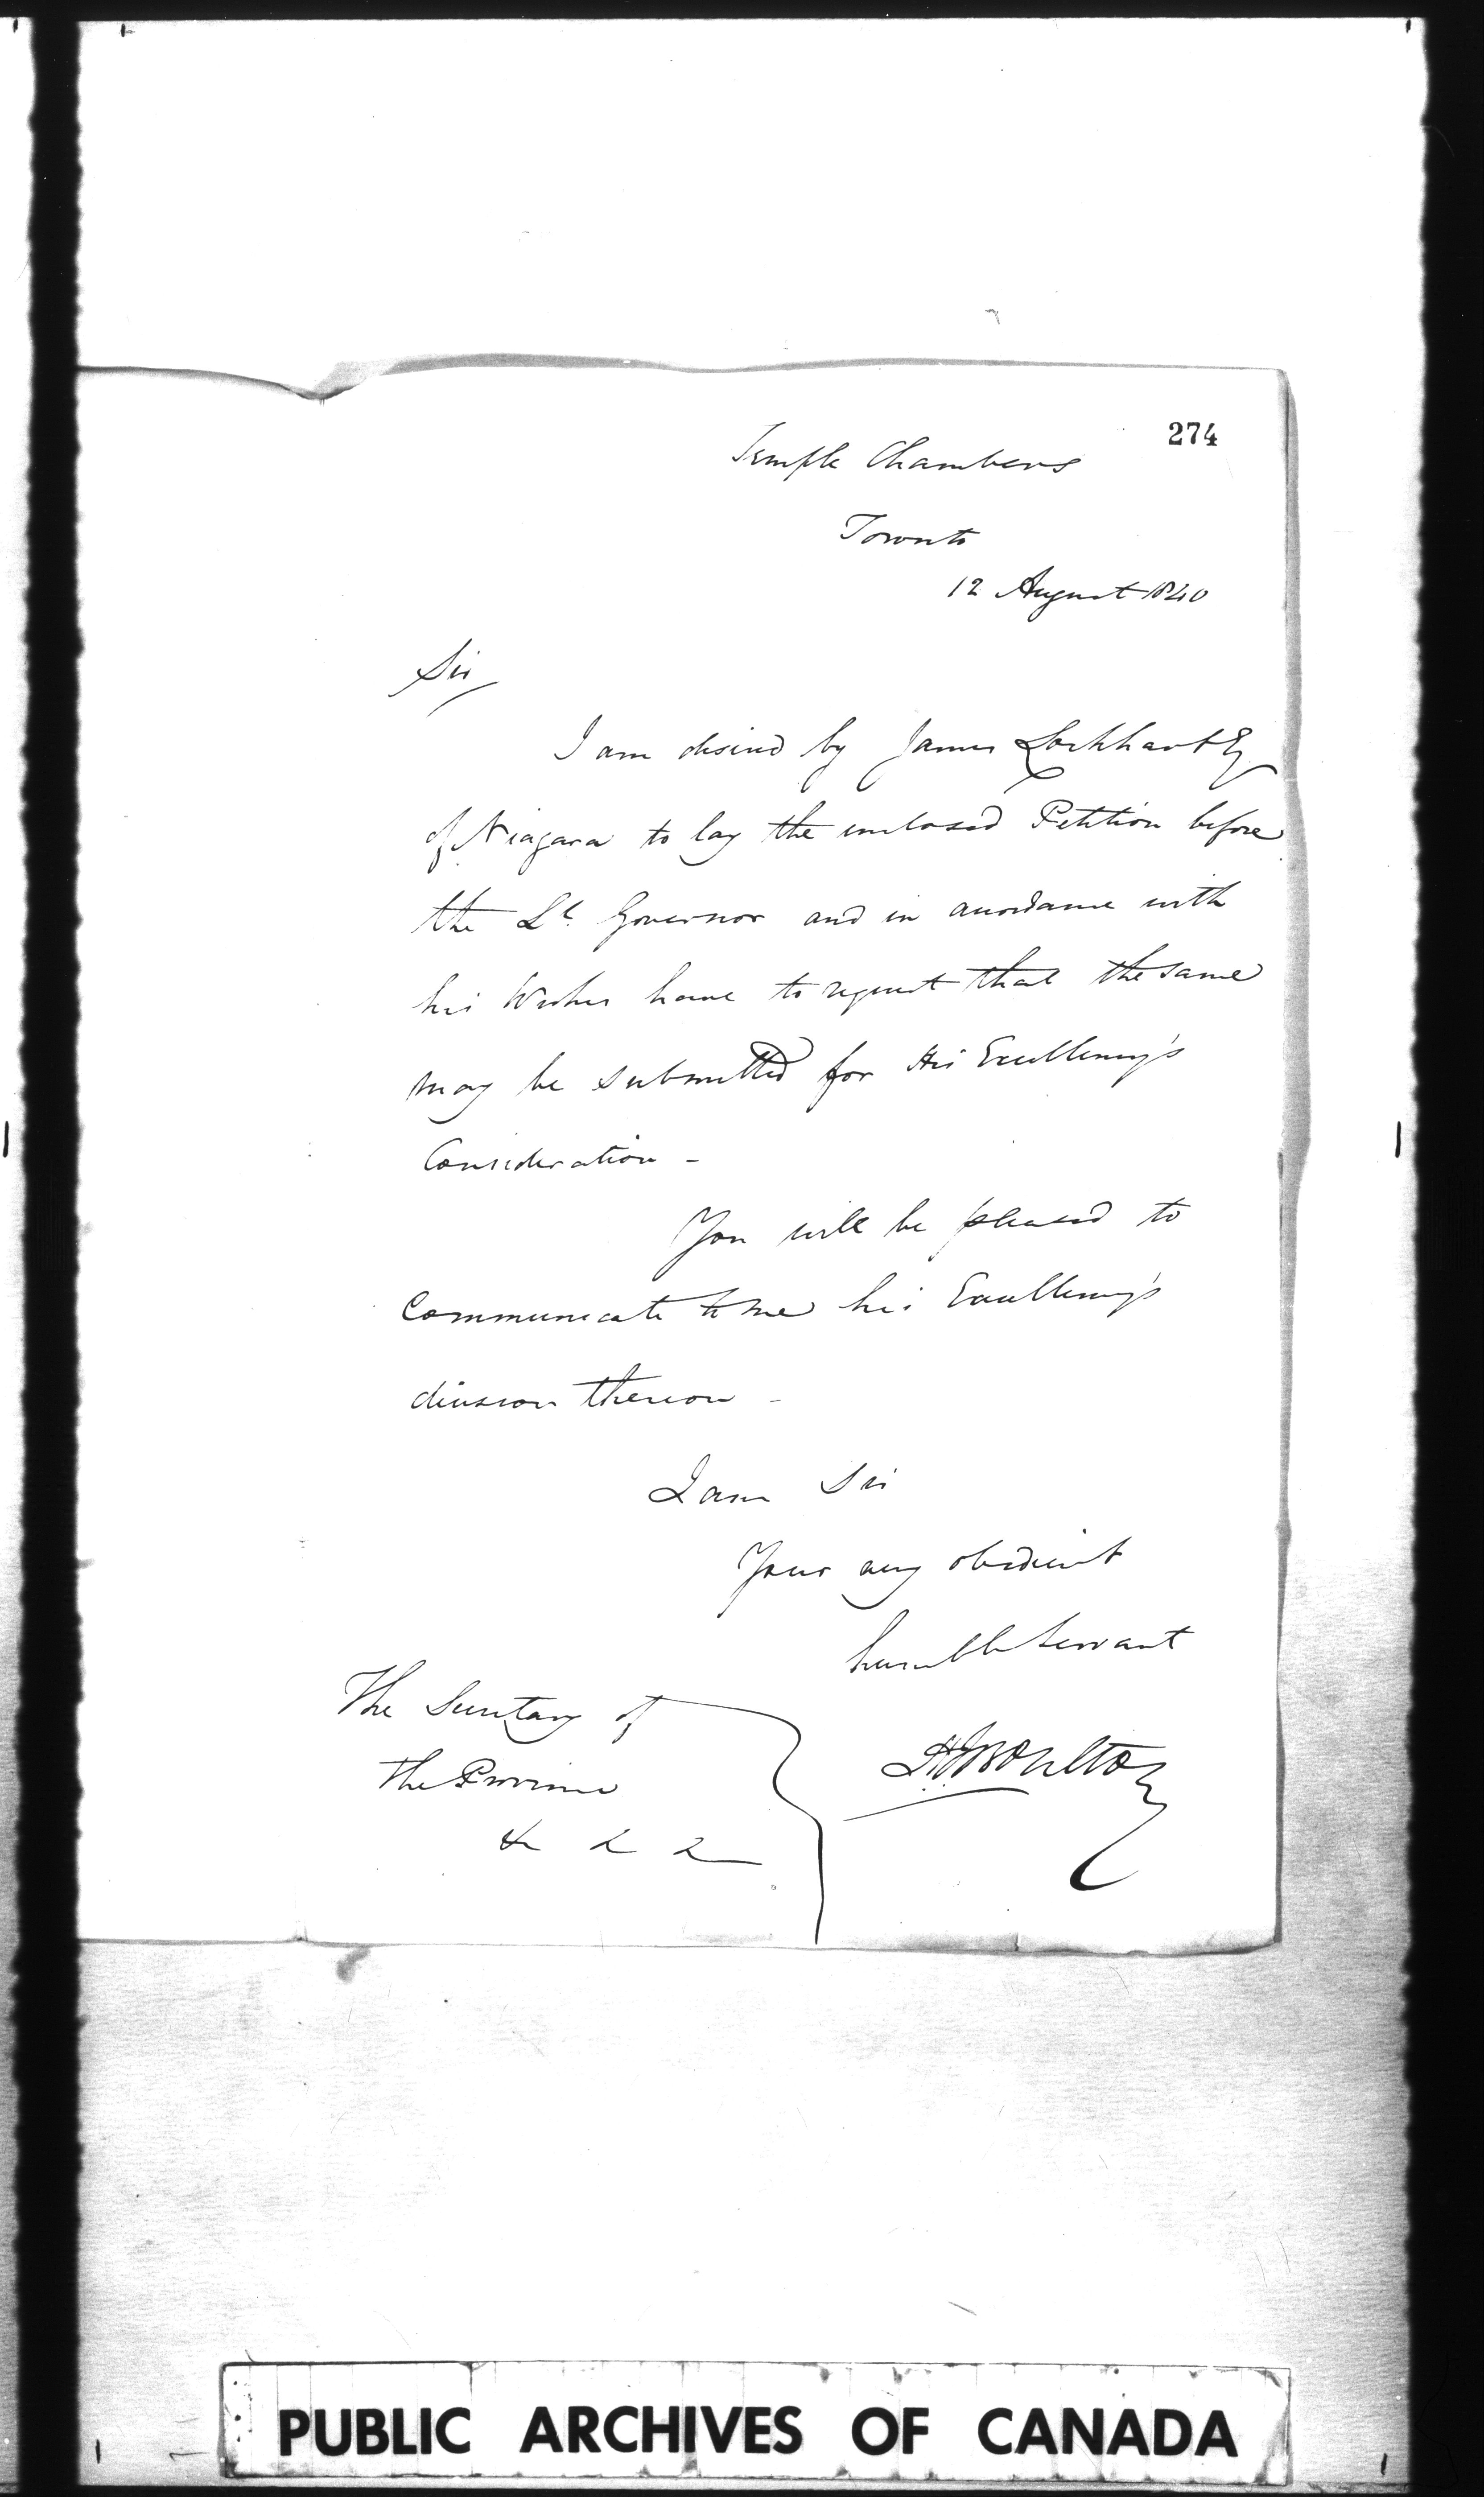 274
Temple Chambers
Toronto
12 August 1840
Sir
I am desired by James Lockhart Esq
of Niagara to lay the enclosed Petition before
the Lt. Governor and in accordance with
his Wishes have to request that the same
may be submitted for His Excellency's
Consideration -
You will be pleased to
Communicate to me his Excellency's
decision thereon -
I am Sir
Your very obedient
humble Servant
HJBoulton
The Secretary of
the Province
&c & &
PUBLIC ARCHIVES OF CANADA